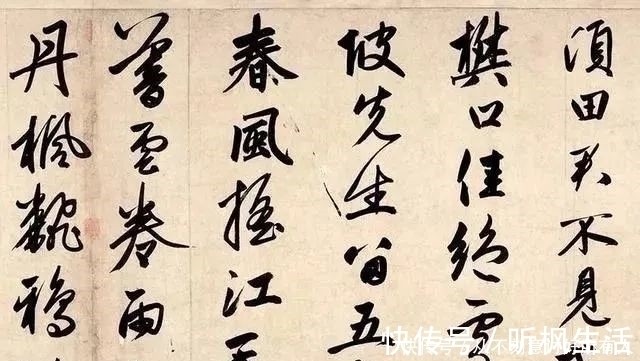 頃田君不見
樊口佳絕處
坡先生留五
春風搖江天
暮雲卷雨
丹楓翻鴉
快传号 / 听枫生活